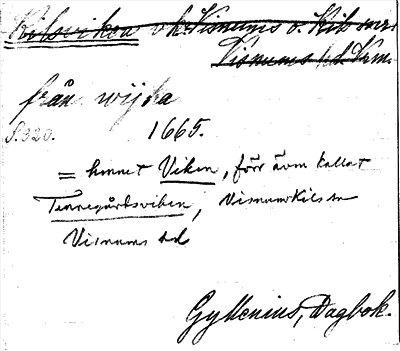 Kilsviken o k. Visnums o. Kil snr
Visnums hd. Vrm.
från wijka
S. 320.
1665.
= hmnet Viken, förr även kallat
Tennegårdsviken, Visnums Kils sn
Visnums hd
Gyllenius, Dagbok.